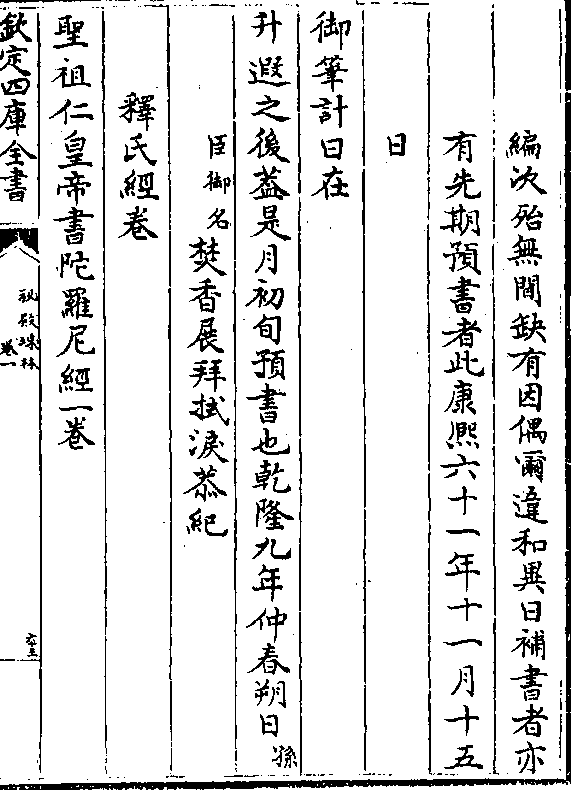 編次殆無間缺有因偶爾違和異日補書者亦
有先期預書者此康熙六十一年十一月十五
日
御筆計日在
升遐之後葢是月初旬預書也乾隆九年仲春朔日孫
臣御名焚香展拜拭淚恭紀
釋氏經卷
聖祖仁皇帝書陀羅尼經一卷
欽定四庫全書
秘殿珠林
卷一